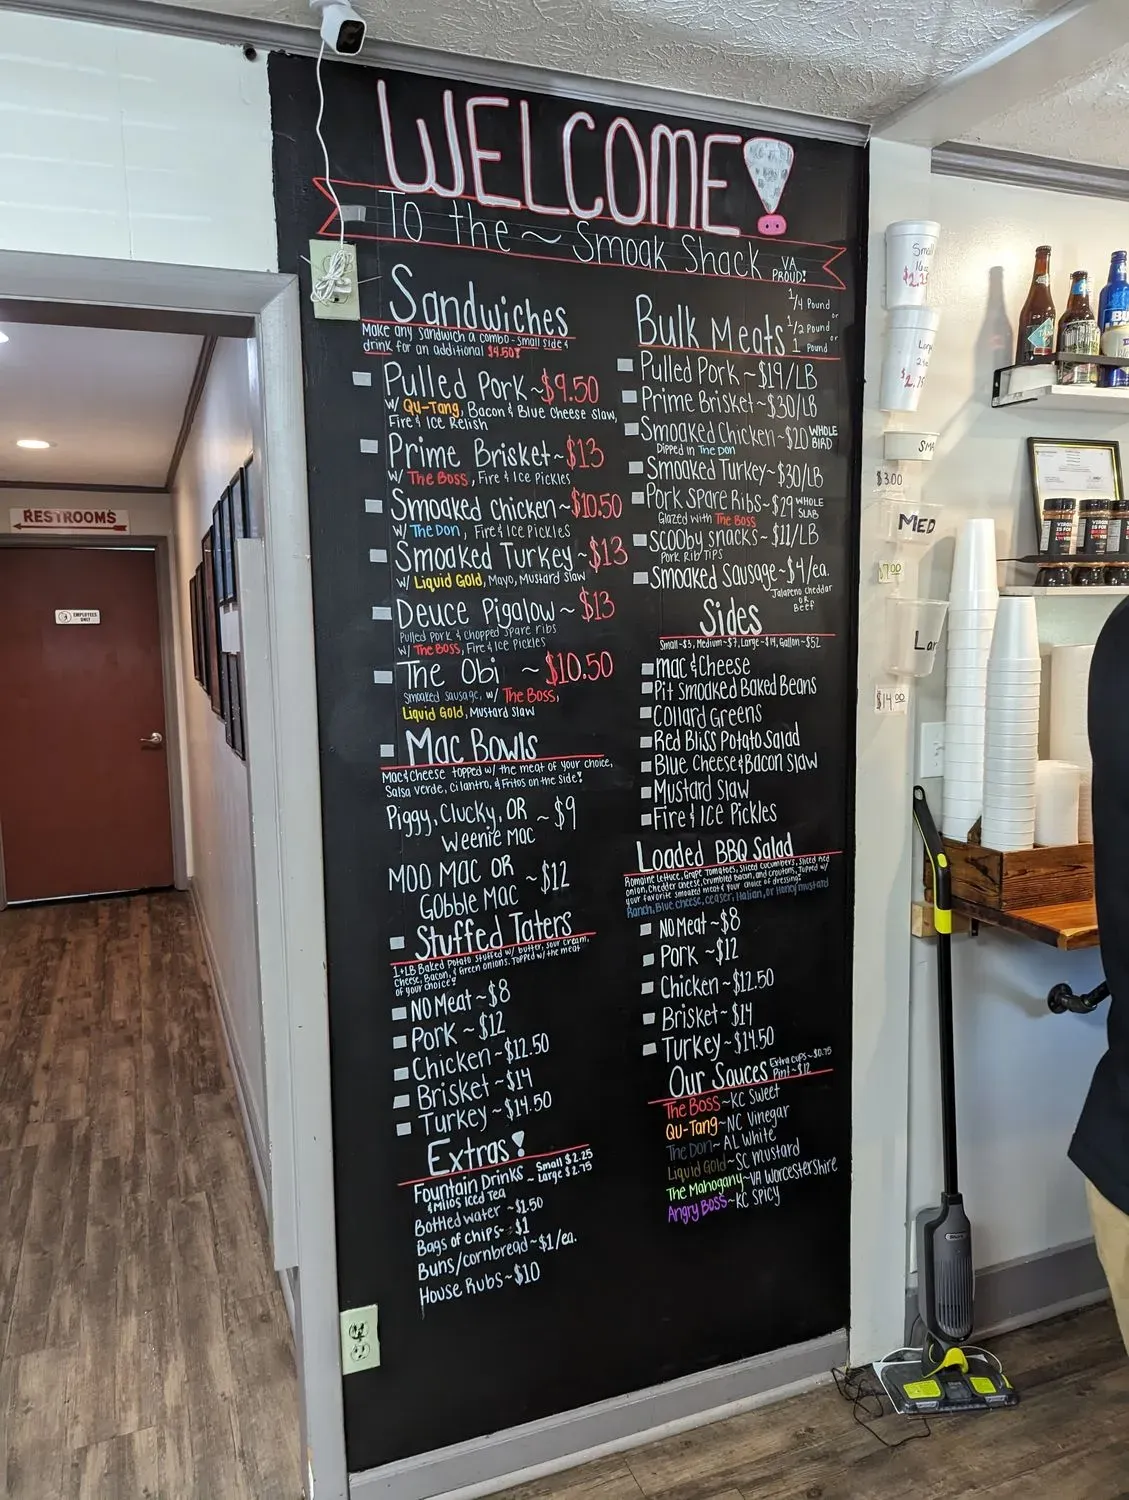 WELCOME!
To the ~ Smoak Shack
VA
PROUD!
Sandwiches
Make any sandwich a combo - small side &
drink for an additional $4.50!
Pulled Pork ~ $9.50
w/ Qu-Tang, Bacon & Blue Cheese Slaw,
Fire & Ice Relish
Prime Brisket ~ $13
w/ The Boss, Fire & Ice Pickles
Smoaked Chicken ~ $10.50
w/ The Don, Fire & Ice Pickles
Smoaked Turkey ~ $13
w/ Liquid Gold, Mayo, Mustard Slaw
Deuce Pigalow ~ $13
Pulled Pork & Chopped Spare ribs
w/ The Boss, Fire & Ice Pickles
The Obi ~ $10.50
Smoaked Sausage, w/ The Boss,
Liquid Gold, Mustard Slaw
Mac Bowls
Mac & Cheese topped w/ the meat of your choice,
Salsa verde, cilantro, & Fritos on the side!
Piggy, Clucky, OR ~ $9
Weenie Mac
MOO MAC OR ~ $12
Gobble Mac
Stuffed Taters
1+LB Baked potato stuffed w/ butter, sour cream,
Cheese, Bacon, & Green onions. Topped w/ the meat
of your choice!
NO Meat ~ $8
Pork ~ $12
Chicken ~ $12.50
Brisket ~ $14
Turkey ~ $14.50
Extras!
Fountain Drinks ~ Small $2.25
& Milo's Iced Tea ~ Large $2.75
Bottled water ~ $1.50
Bags of chips ~ $1
Buns/cornbread ~ $1/ea.
House Rubs ~ $10
Bulk Meats
1/4 Pound or
1/2 Pound or
1 Pound
Pulled Pork ~ $19/LB
Prime Brisket ~ $30/LB
Smoaked Chicken ~ $20 WHOLE BIRD
Dipped in The Don
Smoaked Turkey ~ $30/LB
Pork Spare Ribs ~ $29 WHOLE SLAB
Glazed with The Boss
Scooby snacks ~ $11/LB
Pork Rib Tips
Smoaked Sausage ~ $4/ea.
Jalapeno Cheddar
OR
Beef
Sides
Small ~ $3, Medium ~ $7, Large ~ $14, Gallon ~ $52
Mac & Cheese
Pit Smoaked Baked Beans
Collard Greens
Red Bliss Potato Salad
Blue Cheese & Bacon Slaw
Mustard Slaw
Fire & ICE Pickles
Loaded BBQ Salad
Romaine lettuce, Grape Tomatoes, Sliced cucumbers, Sliced Red
onion, Chedder cheese, crumbled bacon, and croutons, Topped w/
your favorite smoaked meat & your choice of dressing!
Ranch, Blue cheese, ceaser, Italian, or Honey mustard
NO Meat ~ $8
Pork ~ $12
Chicken ~ $12.50
Brisket ~ $14
Turkey ~ $14.50
Our Sauces
Extra cups ~ $0.75
Pint ~ $12
The Boss ~ KC Sweet
Qu-Tang ~ NC Vinegar
The Don ~ AL White
Liquid Gold ~ SC mustard
The Mahogany ~ VA Worcestershire
Angry Boss ~ KC Spicy
RESTROOMS
EMPLOYEES
ONLY
Small
$3.00
MED
$7.00
$14.00